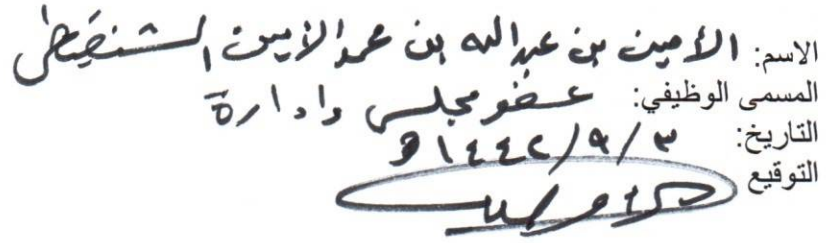 الاسم: الأمين بن عبدالله بن محمد الأمين الشنقيطي
المسمى الوظيفي: عضو مجلس وادارة
التاريخ: ٣ / ٩ / ١٤٤٢ھ
التوقيع